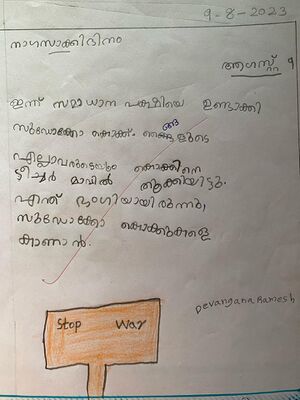 9-8-2023
നാഗസാക്കിദിനം
ആഗസ്റ്റ് 9
ഇന്ന് സമാധാന പക്ഷിയെ ഉണ്ടാക്കി
സുഡോക്കോ കൊക്ക്. ഞങ്ങളുടെ
എല്ലാവരുടെയും കൊക്കിനെ
ടീച്ചർ മാവിൽ തൂക്കിയിട്ടു.
എന്ത് ഭംഗിയായിരുന്നു,
സുഡോക്കോ കൊക്കുകളെ
കാണാൻ.
Devangana Ramesh
Stop War